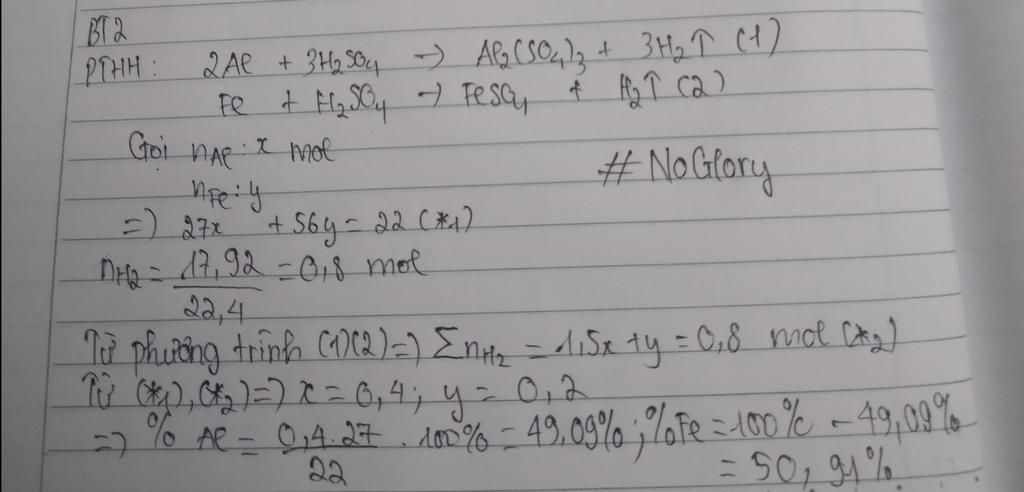 BT2
PTHH: 2Al + 3H₂SO₄ → Al₂(SO₄)₃ + 3H₂↑ (1)
Fe + H₂SO₄ → FeSO₄ + H₂↑ (2)
Gọi nAl: x mol
#NoGlory
nFe: y
=) 27x + 56y = 22 (*₁)
nH₂ = 17,92/22,4 = 0,8 mol
Từ phương trình (1)(2) =) ΣnH₂ = 1,5x + y = 0,8 mol (*₂)
Từ (*₁), (*₂) =) x = 0,4; y = 0,2
=) % Al = 0,4.27/22 . 100% = 49,09%; %Fe = 100% - 49,09%
= 50,91%